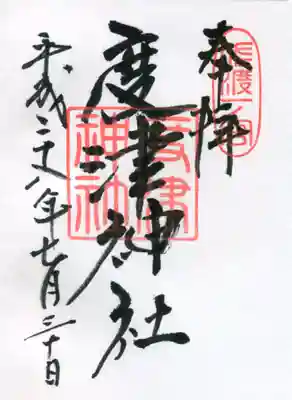 奉拝
佐渡一宮
度津神社
度津神社
平成二十八年七月三十日